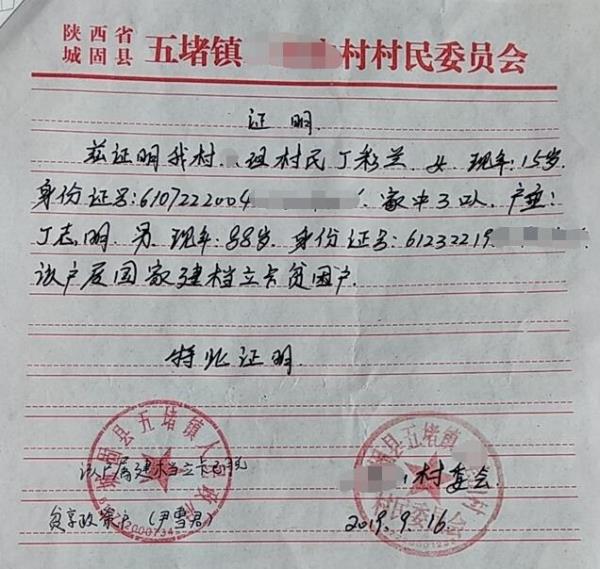 陕西省
城固县 五堵镇 村村民委员会
证明
兹证明我村 组村民丁彩兰,女,现年:15岁.
身份证号:6107222004 家中3口人,户主:
丁志明.男.现年:88岁.身份证号:61232219
该户属国家建档立卡贫困户.
特此证明.
城固县五堵镇人民政府
该户属建档立卡
政策户(尹雪君)
固县五堵镇
村民委员会
村委会
2019.9.16